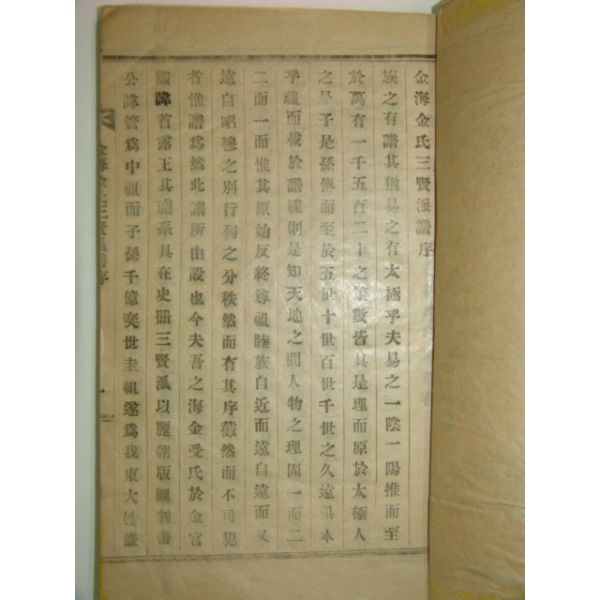 金海金氏三賢派譜序
族之有譜其猶易之有太極乎夫易之一陰一陽推而至
於萬有一千五百二十之策數皆具是理而原於太極人
之是子是孫傳而至於五世十世百世千世之久遠俱本
乎祖而載於譜牒則是知天地之間人物之理固一而二
二而一惟其原始反終尊祖睦族自近而遠自遠而
遠自昭穆之別行列之分秩然而有其序截然而不可犯
者惟譜爲然此譜所由設也今夫吾之海金受氏於金官
國諱首露王其璿系具在史冊三賢派以麗朝版圖判書
公諱管爲中祖而子孫千億奕世圭組遂爲我東大姓盛
金海金氏三賢派譜序
一